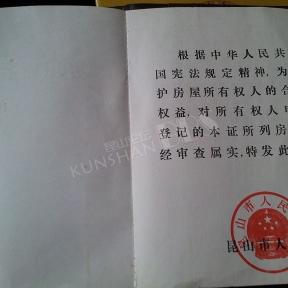 根据中华人民共
国宪法规定精神,为
护房屋所有权人的合
权益,对所有权人申
登记的本证所列房
经审查属实,特发此
昆山市人民
昆山市人
昆山论坛
KUNSHAN